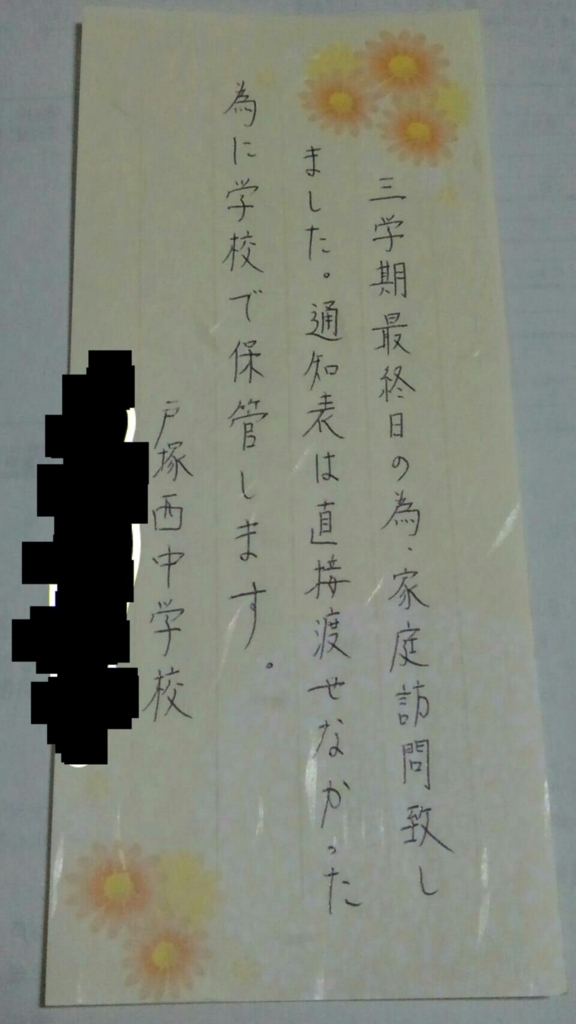 三学期最終日の為、家庭訪問致し
ました。通知表は直接渡せなかった
為に学校で保管します。
戸塚西中学校